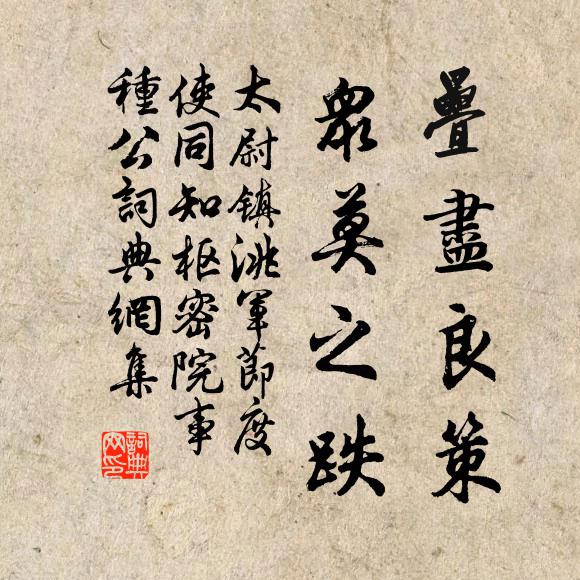 疊盡良策
眾莫之跌
太尉鎮洮軍節度
使同知枢密院事
種公詞典網集
詞典
网印